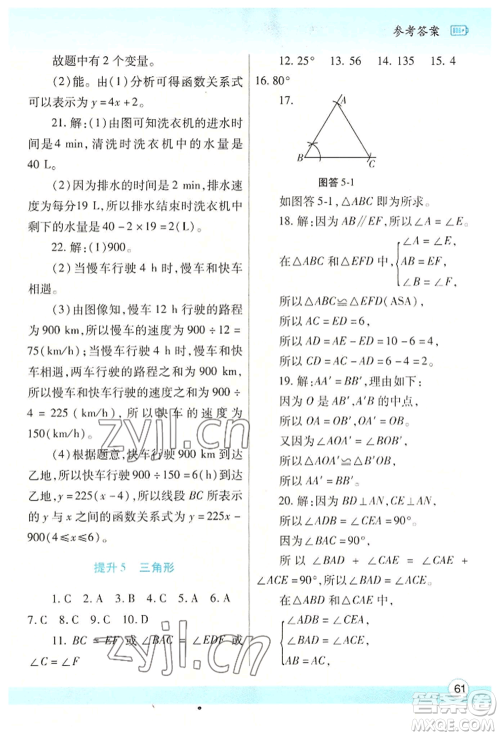 参考答案
故题中有2个变量.
(2)能。由(1)分析可得函数关系式
可以表示为y=4x+2.
21.解:(1)由图可知洗衣机的进水时
间是4 min,清洗时洗衣机中的水量是
40 L.
(2)因为排水的时间是2 min,排水速
度为每分钟19 L,所以排水结束时洗衣机中
剩下的水量是40-2×19=2(L).
22.解:(1)900.
(2)当慢车行驶4 h时,慢车和快车
相遇。
(3)由图像知,慢车12 h行驶的路程
为900 km,所以慢车的速度为900÷12=
75(km/h);当慢车行驶4 h时,慢车和快
车相遇,两车行驶的路程之和为900 km,所
以慢车和快车行驶的速度之和为
900÷4=225(km/h),所以快车的速度为
150(km/h).
(4)根据题意,快车行驶900÷150=6(h)到达
乙地,所以线段BC所表示的
y与x之间的函数关系式为y=225x-
900(4≤x≤6).
提升5 三角形
1.C 2.A 3.B 4.C 5.B 6.C
7.C 8.C 9.C 10.D
11.BC=EF或∠BAC=∠EDF或
∠C=∠F
12.25° 13.56 14.135 15.4
16.80°
17.
A
B
C
图答5-1
如图答5-1,△ABC即为所求。
18.解:因为AB∥EF,所以∠A=∠E.
在△ABC和△EFD中,
∠A=∠E,
AB=EF,
∠B=∠F,
所以△ABC≌△EFD(ASA).
所以AC=ED=6.
所以AD=AE-ED=10-6=4.
所以CD=AC-AD=6-4=2.
19.解:AA′=BB′,理由如下:
因为O是AB′,A′B的中点,
所以OA=OB′,OA′=OB.
又因为∠AOA′=∠BOB′,
所以△AOA′≌△B′OB.
所以AA′=BB′.
20.解:因为BD⊥AN,CE⊥AN,
所以∠ADB=∠CEA=90°.
因为∠BAC=90°,
所以∠BAD+∠CAE=∠CAE+
∠ACE=90°.
所以∠BAD=∠ACE.
在△ABD和△CAE中,
∠ADB=∠CEA,
∠BAD=∠ACE,
AB=CA,
61
zyjl.cn
zyjl.cn
答案圈